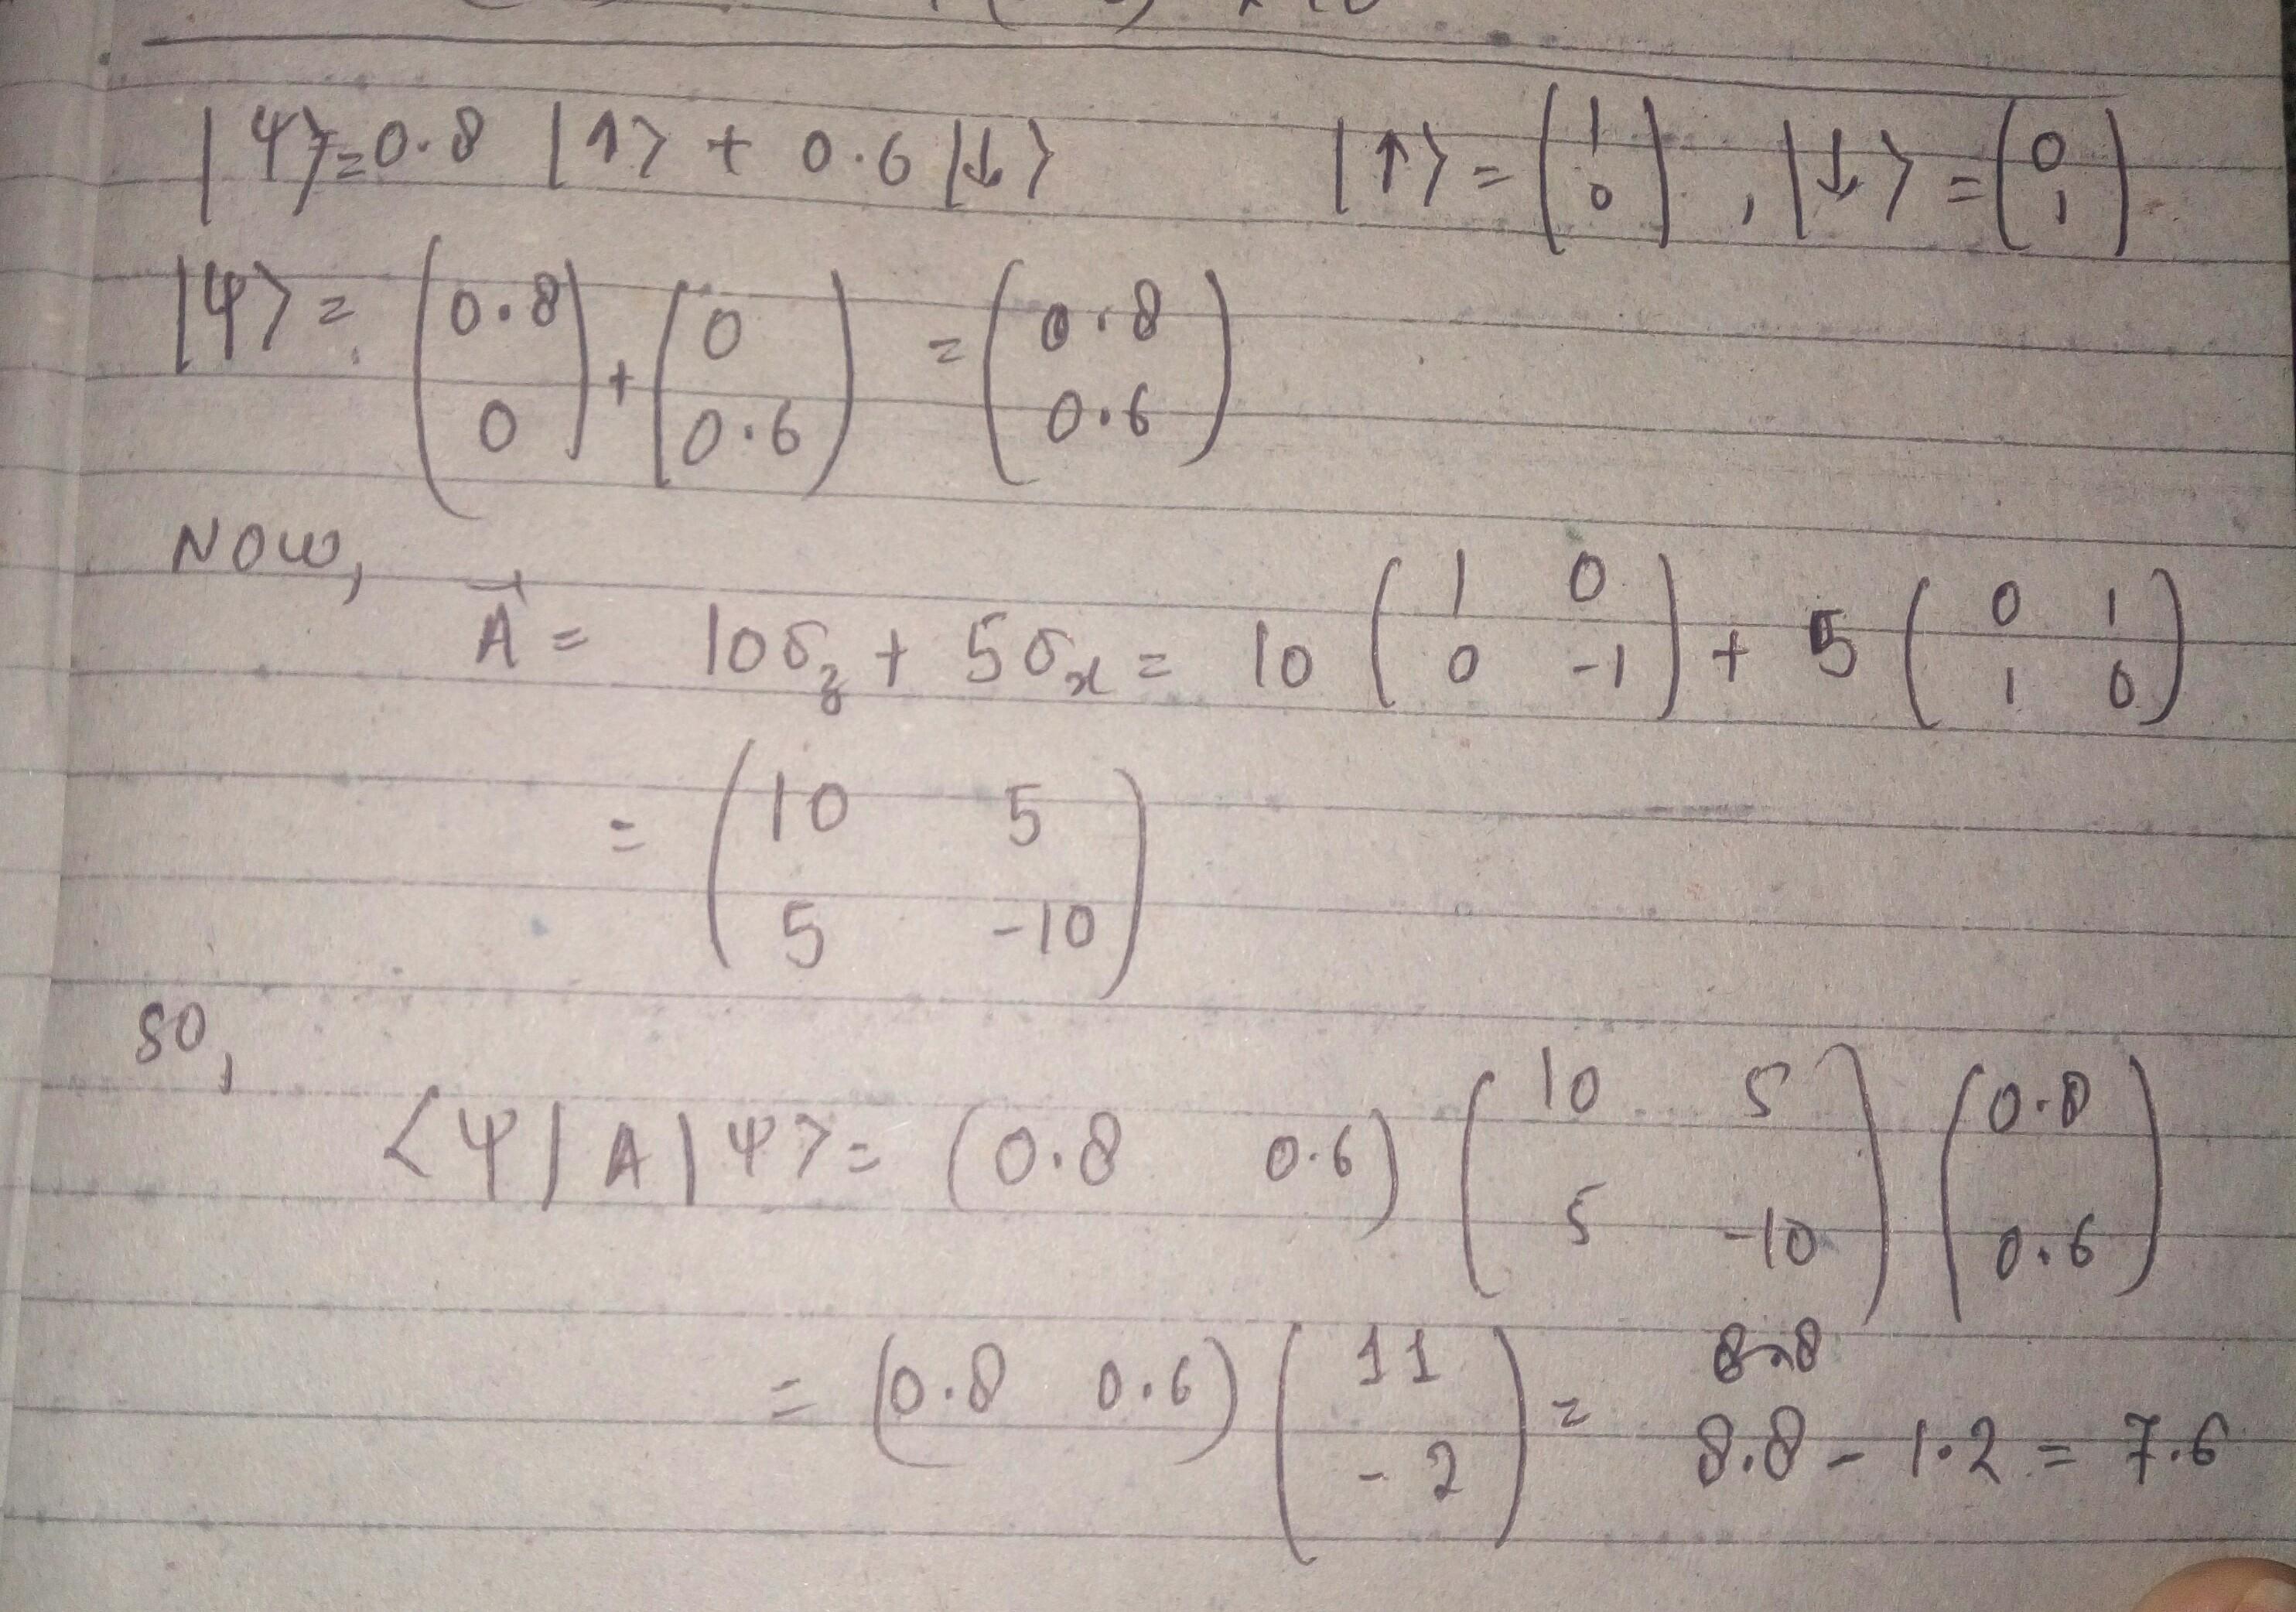 |Ψ⟩=0.8 |↑⟩ + 0.6 |↓⟩ |↑⟩ = (1 0), |↓⟩ = (0 1).
|Ψ⟩ = (0.8 0) + (0 0.6) = (0.8 0.6)
NOW,
A⃗ = 10σz + 5σx = 10 (1 0 0 -1) + 5 (0 1 1 0)
= (10 5 5 -10)
SO,
⟨Ψ|A|Ψ⟩ = (0.8 0.6) (10 5 5 -10) (0.8 0.6)
= (0.8 0.6) (11 -2) = 8.8 - 1.2 = 7.6